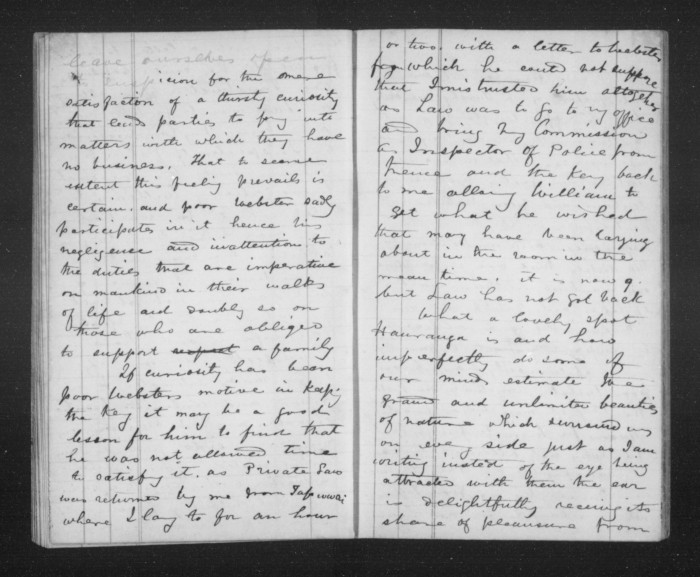 leave ourselves open
icion for the mere
satisfaction of a thirsty curiosity
that leads parties to pry into
matters with which they have
no business. That to some
extent this feeling prevails is
certain. and poor Webster sadly
participates in it hence his
negligence and inattention to
the duties that are imperative
on mankind in their walks
of life and doubly so on
those who are obliged
to support a family
If curiosity has been
poor Websters motive in keepg
the Key it may be a good
lesson for him to find that
he was not allowed time
to satisfy it. as Private Law
was returned by me from Tapuwai
where I lay to for an hour
or two. with a letter to Webster
from which he could not suppose
that I mistrusted him altogether
as Law was to go to my office
and bring my Commission
as Inspector of Police from
thence and the Key back
to me allowing William to
get what he wished
that may have been laying
about in the room in the
mean time. it is now 9.
but Law has not got back
What a lovely spot
Hauranga is and how
imperfectly do some of
our minds estimate the
grand and unlimited beauties
of nature which surround us
on every side just as I am
writing insted of the eye being
attracted with them the ear
is delightfully receiving its
share of pleausure from